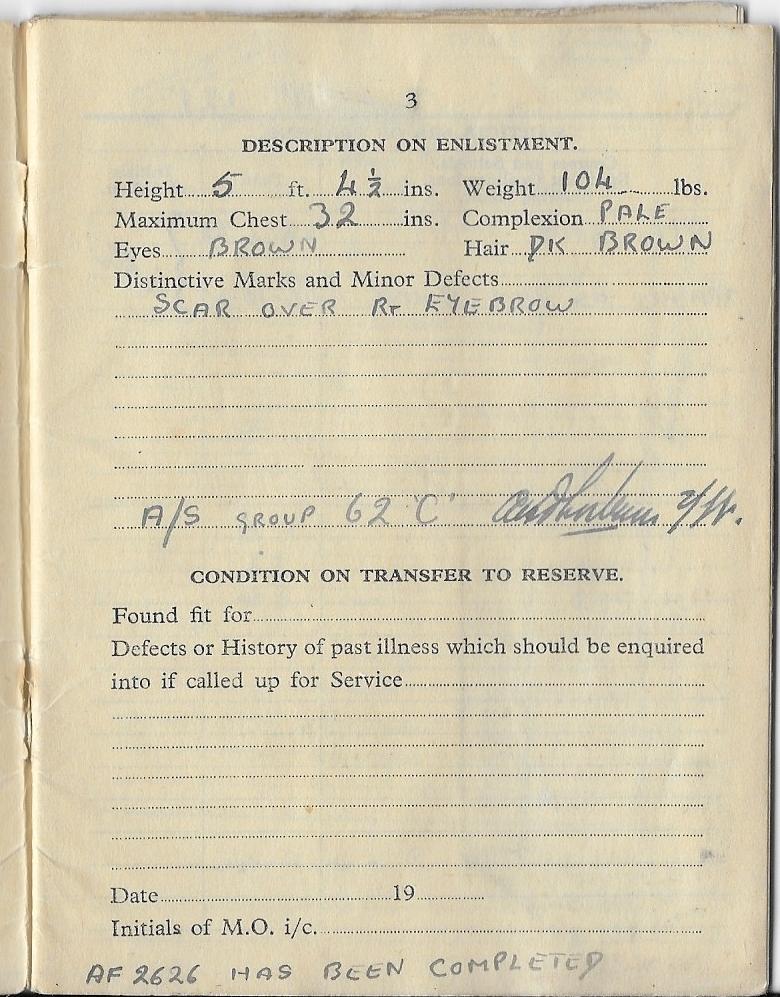 3
DESCRIPTION ON ENLISTMENT.
Height 5 ft. 4½ ins. Weight 104 lbs.
Maximum Chest 32 ins. Complexion PALE
Eyes BROWN Hair DK BROWN
Distinctive Marks and Minor Defects
SCAR OVER RT EYEBROW
A/S GROUP 62 'C'
CONDITION ON TRANSFER TO RESERVE.
Found fit for
Defects or History of past illness which should be enquired
into if called up for Service
Date 19
Initials of M.O. i/c.
AF 2626 HAS BEEN COMPLETED